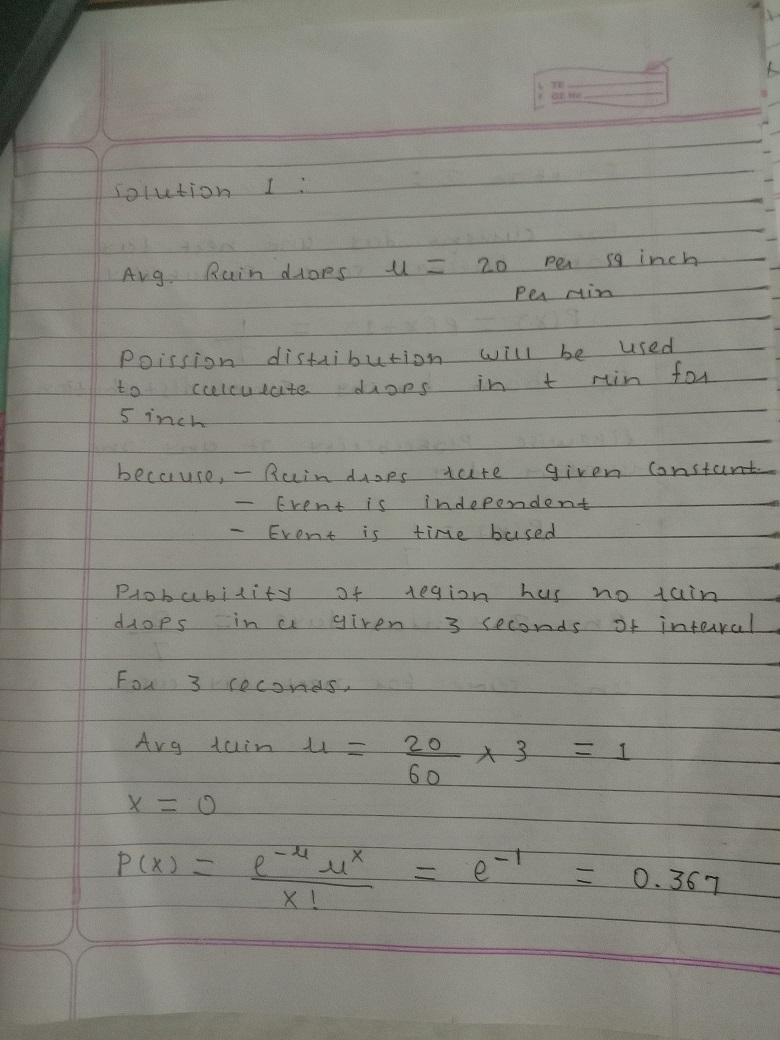 Solution 1 :
Avg. Rain drops μ = 20 per sq inch
per min
Poission distribution will be used
to calculate drops in t min for
5 inch
because, - Rain drops rate given constant
- Event is independent
- Event is time based
Probability of region has no rain
drops in a given 3 seconds of interval
For 3 seconds,
Avg rain μ = 20/60 × 3 = 1
x = 0
P(x) = e^-μ μ^x / x! = e^-1 = 0.367